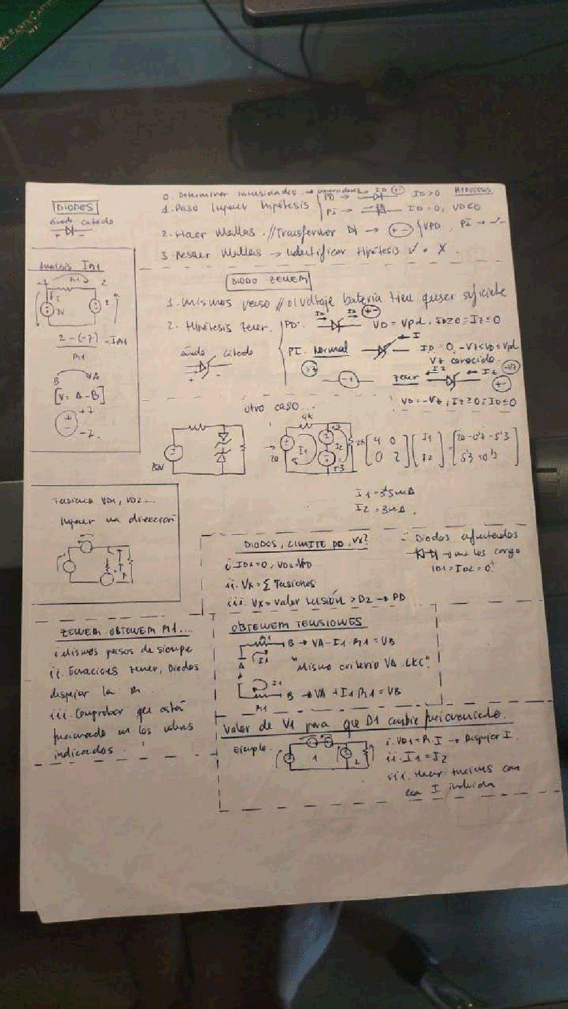 DIODOS
ánodo cátodo
0. Determinar intensidades →
PD → ID>0 HIPÓTESIS
1. Paso imponer hipótesis
PI → ID=0, VD≤0
2. Hacer Mallas. //Transformar → VPD, PI →
3. Resolver Mallas → Identificar Hipótesis ✓ o X.
Análisis IR1
R1
2
I
2 - (-7) = IR1
R1
B VA
[V = A - B]
+7
-7
DIODO ZENER
1. Mismos //el voltaje batería tiene que ser suficiente
2. Hipótesis zener.
PD: VD = Vpd, ID≥0 = IZ=0
ánodo cátodo
PI. Normal ID=0, -VZ<VD<Vpd
VZ conocido.
zener IZ IZ
VD=-VZ, IZ≥0 = ID≤0
otro caso...
4k
20 I1 I2
[4 0 0 2] [I1 I2] = [20-0'7-5'3 5'3+0'7]
I1=3'5mA
I2=3mA.
Tensiones VD1, VD2...
Imponer una dirección
DIODOS, LIMITE DO, VX?
i. IDX=0, VDX=VPD
ii. VX = Σ Tensiones
iii. VX = valor tensión > D2 → PD
Diodos enfrentados
→ no los cargo
ID1 = ID2 = 0
ZENER OBTENER R1...
i. Mismos pasos de siempre
ii. Ecuaciones zener, Diodos
despejar la R1
iii. Comprobar que está
funcionando en los valores
indicados.
OBTENER TENSIONES
R1 B → VA - I1·R1 = VB
I1
A
"Mismo criterio VA LKC"
A
I1
R1 B → VA + I1·R1 = VB
Valor de V1 para que D1 cambie funcionando.
Ejemplo.
1 2
i. VD1 = R·I → Despejar I
ii. I1 = I2
iii. Hacer con
esa I incluida